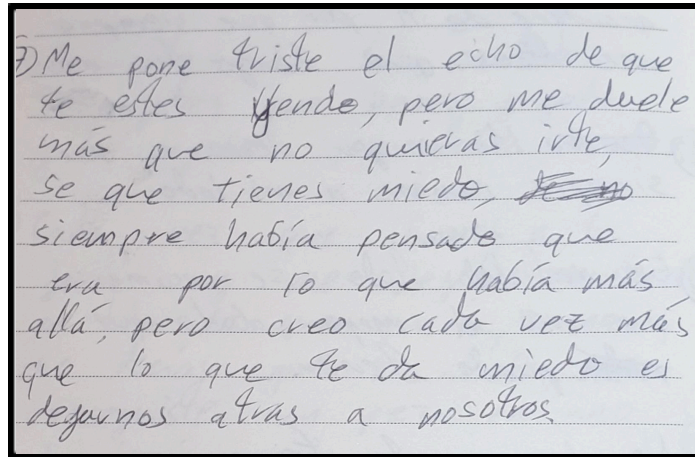 7) Me pone triste el echo de que
te estes yendo, pero me duele
más que no quieras irte,
se que tienes miedo,
siempre había pensado que
era por lo que había más
allá, pero creo cada vez más
que lo que te da miedo es
dejarnos atras a nosotros.